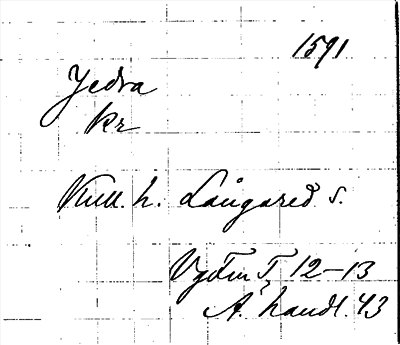 1591
Jedra
kr
Kull. h. Långared s.
VgFmT, 12-13
Ä. handl. 43